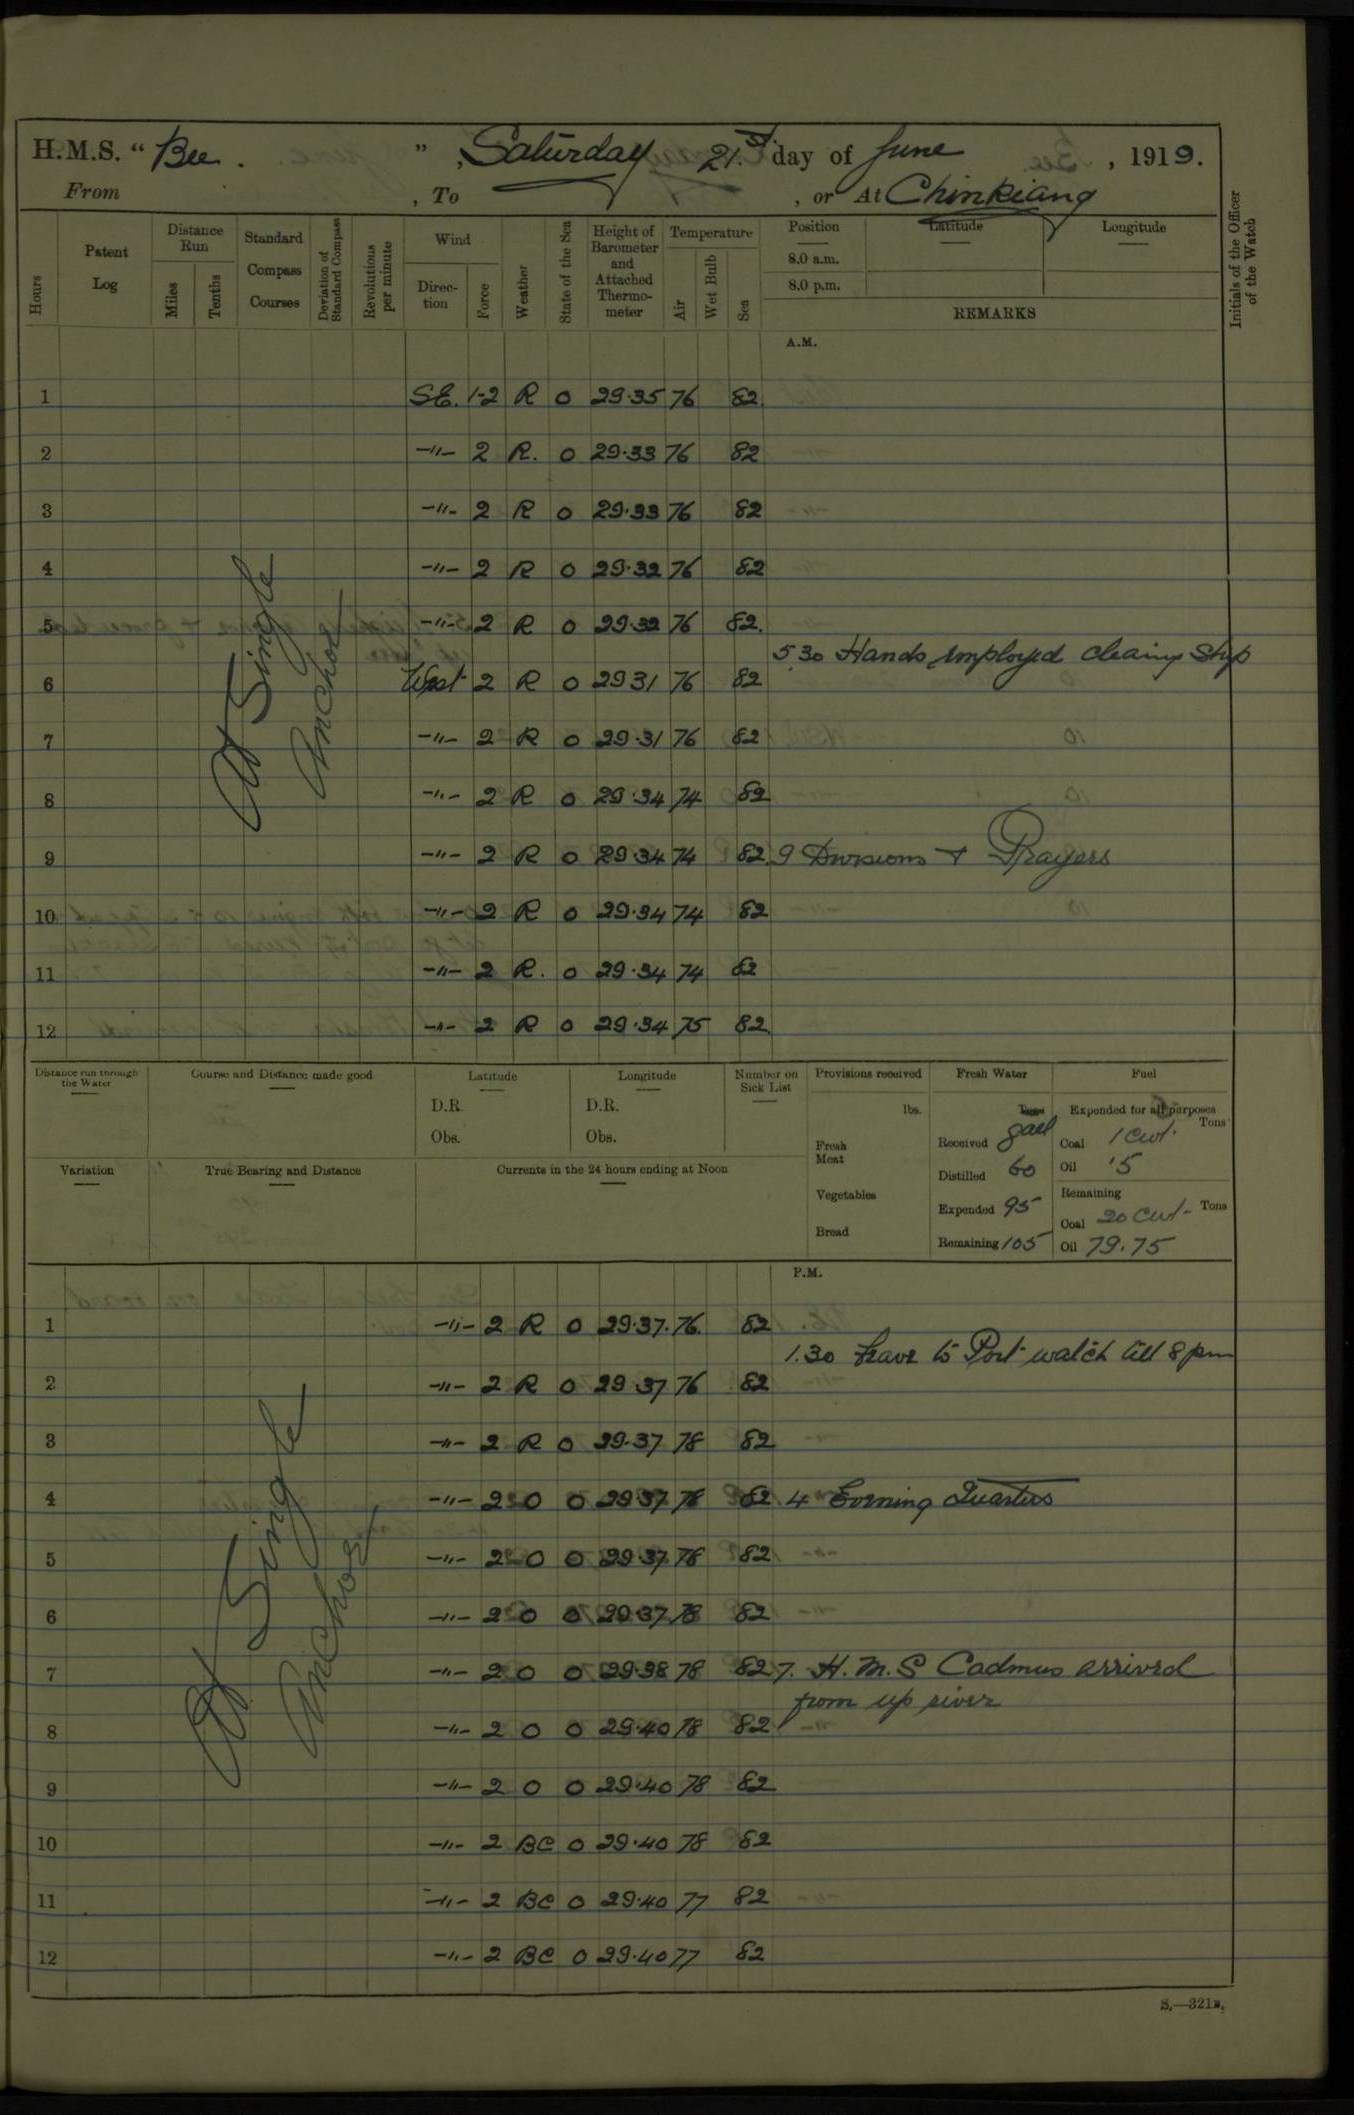 H.M.S. “ Bee . ” , Saturday 21.st day of June , 1919.
From , To , or At Chinkiang
Hours
Patent Log
Distance Run
Miles
Tenths
Standard Compass Courses
Deviation of Standard Compass
Revolutions per minute
Wind
Direction
Force
Weather
State of the Sea
Height of Barometer and Attached Thermometer
Temperature
Air
Wet Bulb
Sea
Position
8.0 a.m.
8.0 p.m.
Latitude
Longitude
REMARKS
Initials of the Officer of the Watch
A.M.
1 SE. 1-2 R 0 29.35 76 82
2 -"- 2 R. 0 29.33 76 82
3 -"- 2 R 0 29.33 76 82
4 -"- 2 R 0 29.32 76 82
5 -"- 2 R 0 29.32 76 82.
5 30 Hands employed cleaing Ship
6 West 2 R 0 29 31 76 82
7 -"- 2 R 0 29.31 76 82
8 -"- 2 R 0 29.34 74 82
9 -"- 2 R 0 29.34 74 82. 9 Divisions + Prayers
10 -"- 2 R 0 29.34 74 82
11 -"- 2 R. 0 29.34 74 82
12 -"- 2 R 0 29.34 75 82.
At Single
Anchor
Distance run through the Water
Course and Distance made good
Latitude
D.R.
Obs.
Longitude
D.R.
Obs.
Number on Sick List
Provisions received
lbs.
Fresh Meat
Vegetables
Bread
Fresh Water
Tons
Received gall
Distilled 60
Expended 95
Remaining 105
Fuel
Expended for all purposes
Tons
Coal 1 cwt.
Oil .5
Remaining
Tons
Coal 20 cwt-
Oil 79.75
Variation
True Bearing and Distance
Currents in the 24 hours ending at Noon
P.M.
1 -"- 2 R 0 29.37. 76. 82
1.30 Leave to Port watch till 8 pm
2 -"- 2 R 0 29 37 76 82
3 -"- 2 R 0 29.37 78 82
4 -"- 2 0 0 29.37 78 82 4 Evening Quarters
5 -"- 2 0 0 29.37 78 82
6 -"- 2 0 0 29.37 78 82
7 -"- 2 0 0 29.38 78 82 7. H.M.S Cadmus arrived
from up river
8 -"- 2 0 0 29.40 78 82
9 -"- 2 0 0 29.40 78 82
10 -"- 2 BC 0 29.40 78 82
11 -"- 2 BC 0 29.40 77 82
12 -"- 2 BC 0 29.40 77 82
At Single
Anchor
S.—321B.